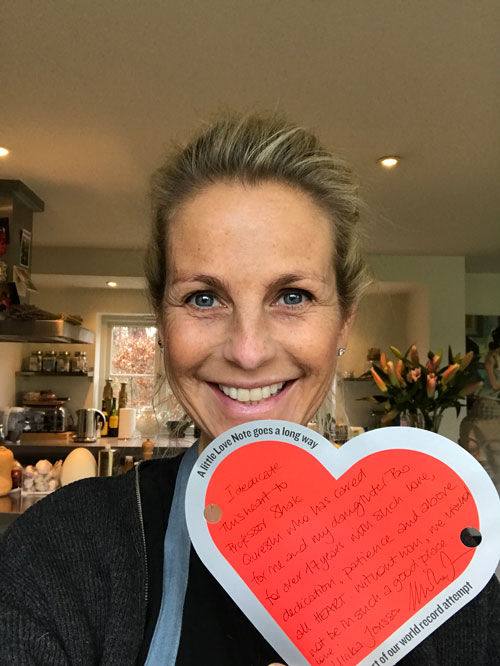 A little Love Note goes a long way
I dedicate
this heart to
Professor Shak
Qureshi who has cared
for me and my daughter Bo
for over 17 years with such love,
dedication, patience and above
all HEART. Without whom, we would
not be in such a good place.
Ulrika Jonsson
t of our world record attempt